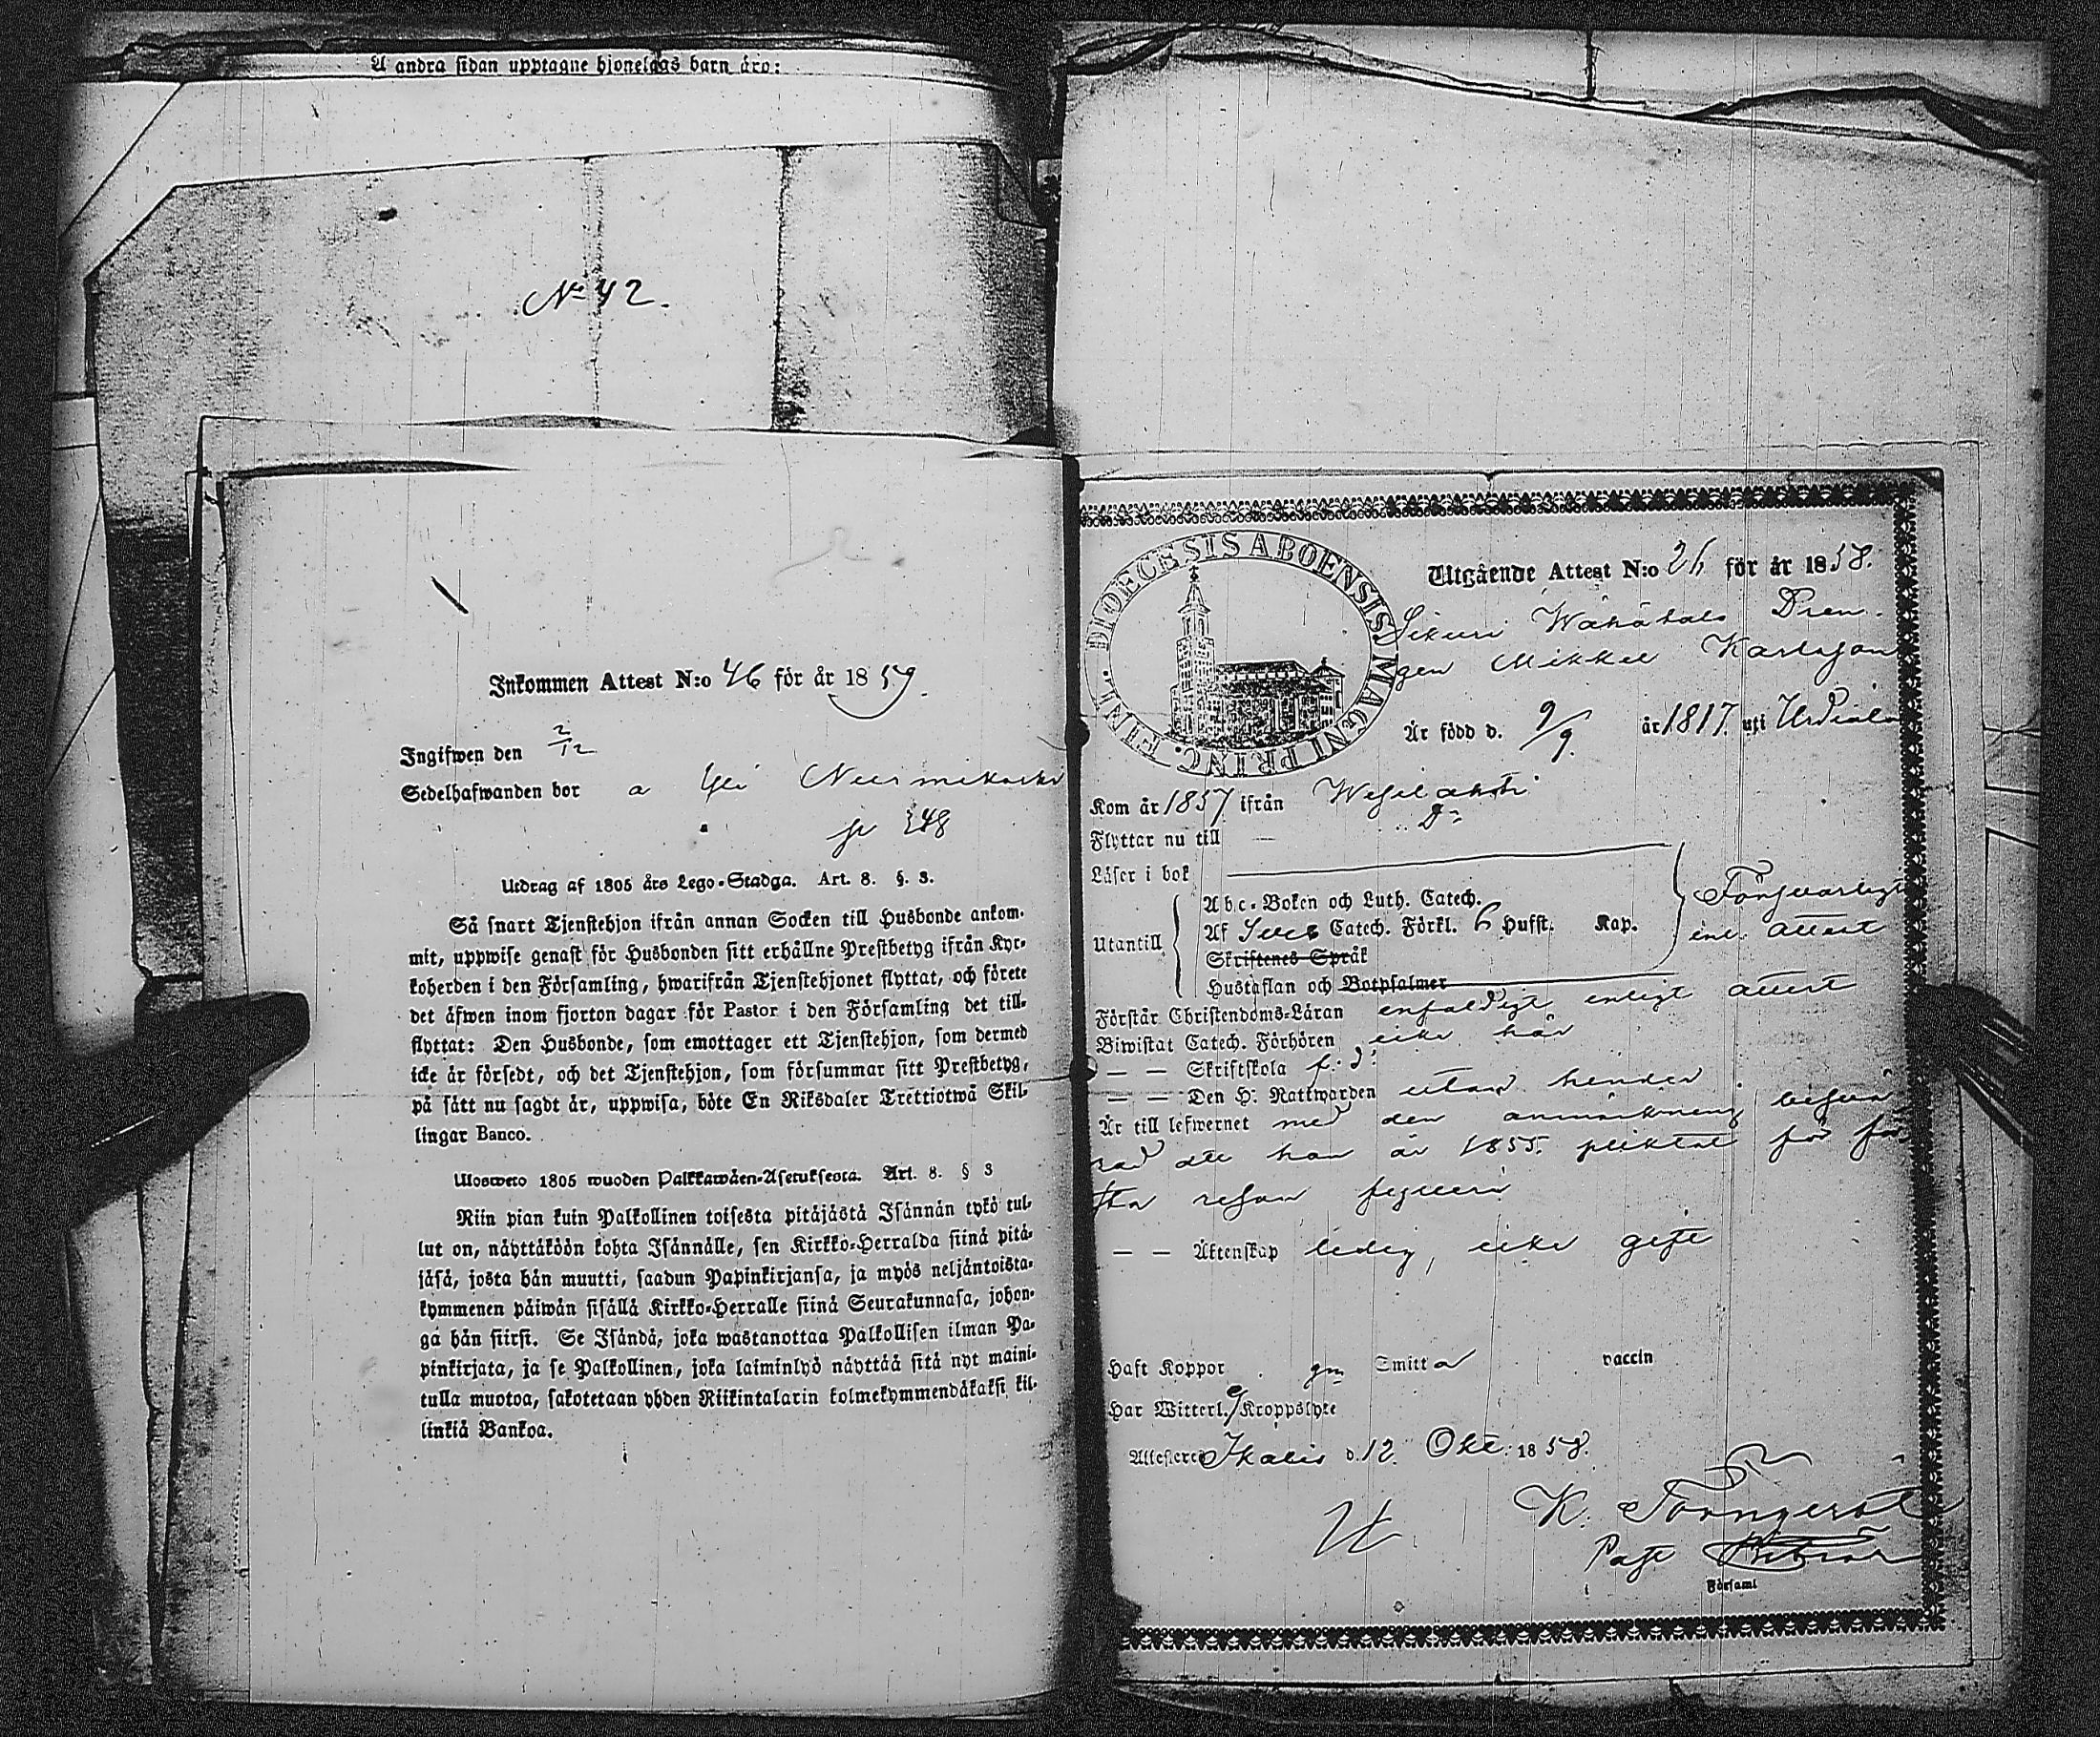 A andra sidan upptagne hjonelags barn äro:
No 42.
Inkommen Attest N:o 46 för år 1859.
Ingifwen den 2/12
Sedelhafwanden bor a Yli
p 248
Utdrag af 1805 års Lego-Stadga. Art. 8. §. 3.
Så snart Tjenstehjon ifrån annan Socken till Husbonde ankom-
mit, uppwise genast för Husbonden sitt erhållne Prestbetyg ifrån Kyr-
koherden i den Församling, hwarifrån Tjenstehjonet flyttat, och förete
det äfwen inom fjorton dagar för Pastor i den Församling det till-
flyttat: Den Husbonde, som emottager ett Tjenstehjon, som dermed
icke är försedt, och det Tjenstehjon, som försummar sitt Prestbetyg,
på sätt nu sagdt är, uppwisa, böte En Riksdaler Trettiotwå Skil-
lingar Banco.
Uloswето 1805 wuoden Palkkawäen-Asetuksesta. Art. 8. § 3
Niin pian kuin Palkollinen toisesta pitäjästä Isännän tykö tul-
lut on, näyttäköön kohta Isännälle, sen Kirkko-Herralda siinä pitä-
jäsä, josta hän muutti, saadun Papinkirjansa, ja myös neljäntoista-
kymmenen päiwän sisällä Kirkko-Herralle siinä Seurakunnasa, johon-
ga hän siirsi. Se Isändä, joka wastanottaa Palkollisen ilman Pa-
pinkirjata, ja se Palkollinen, joka laiminlyö näyttää sitä nyt maini-
tulla muotoa, sakotetaan yhden Riikintalarin kolmekymmendäkaksi kil-
linkiä Bankoa.
DIOECESIS ABOENSIS MAGNI PRINC. FINL.
Utgående Attest N:o 26 för år 1858.
Sikuri Wähätalo Dren-
gen Mikkel Karlsson
Är född d. 9/9. år 1817. uti Urdiala
Kom år 1857 ifrån Wesilahti
Flyttar nu till — Do
Läser i bok
Abc-Boken och Luth. Catech.
Utantill Af Catech. Förkl. 6 Hufst. Kap.
Försvarligt
enl. attest
Skriftenes Språk
Hustaflan och Botpsalmer
Förstår Christendoms-Läran enfaldigt enligt attest
Biwistat Catech. Förhören icke här
— — Skriftskola
— — Den H. Nattwarden utan hinder
Är till lefwernet med den anmärkning
att han år 1855. pliktat för för-
sta resan
— — Äktenskap ledig, icke gift
Haft Koppor gm Smitta vaccin
Har Witterl. Kroppslyte
Attesterar Ikalis d. 12 Okt. 1858.
K.
Församl